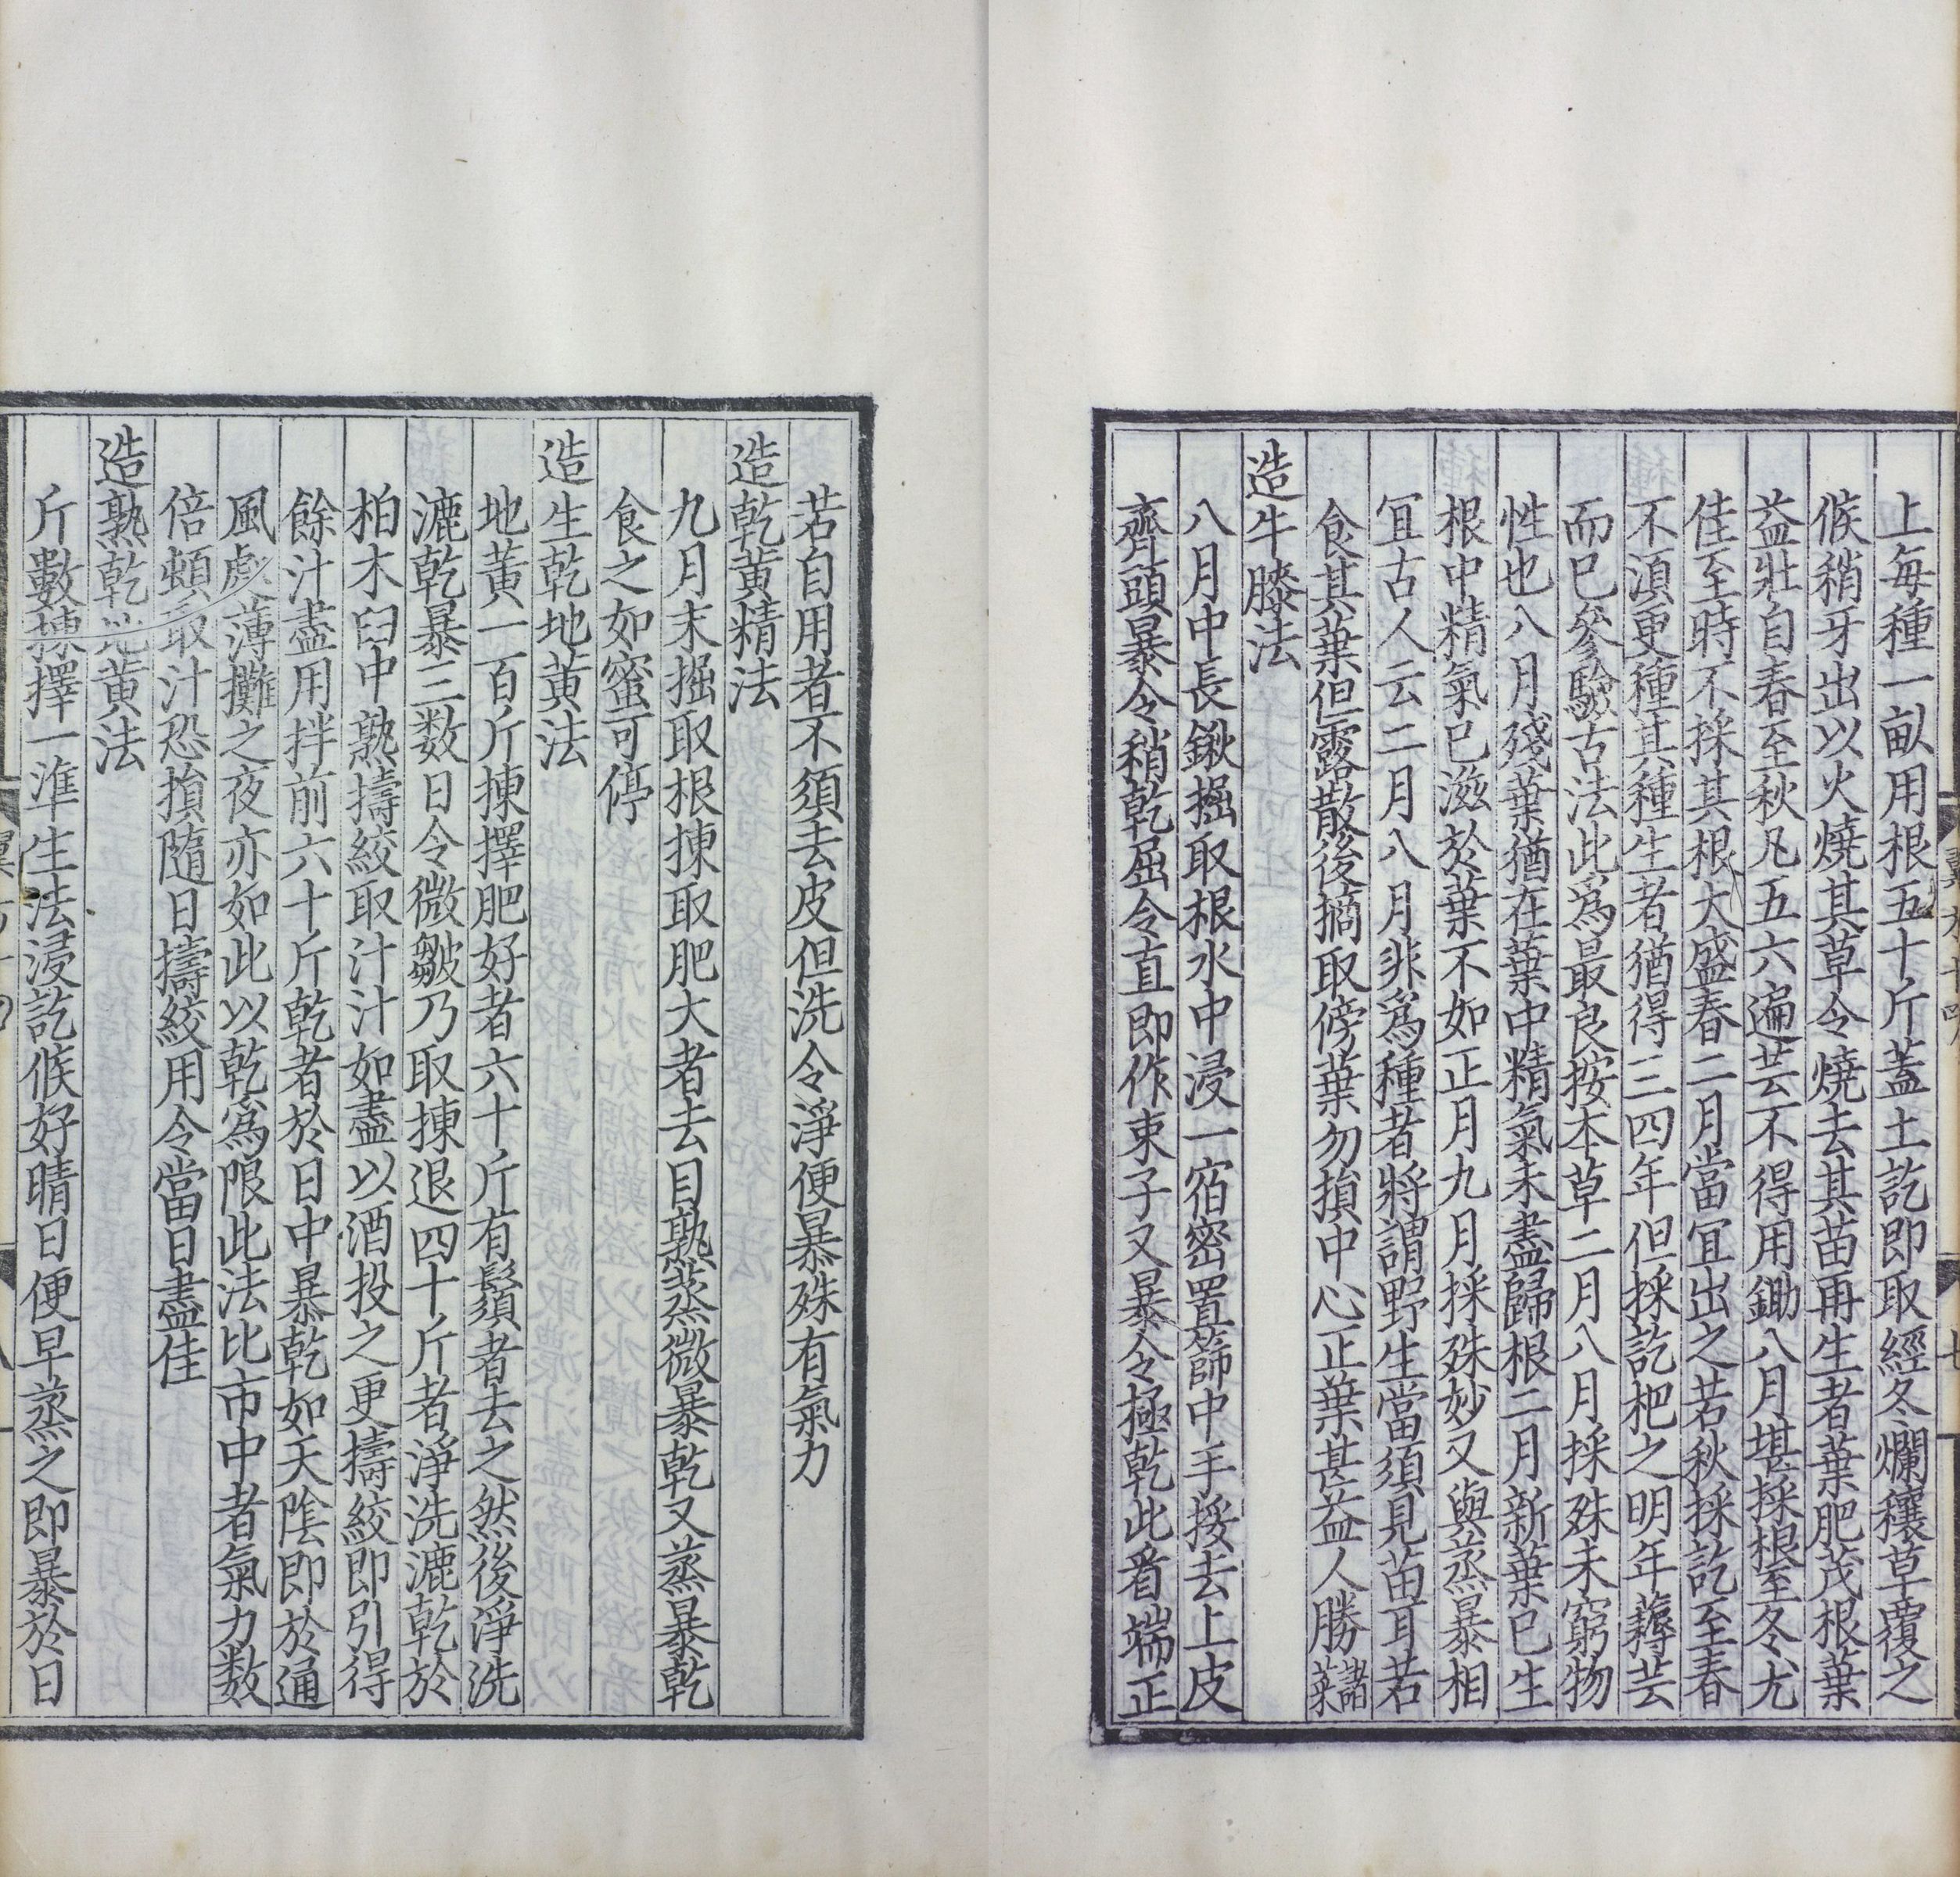 上每種一畝用根五十斤蓋土訖即取經冬爛穰草覆之
候稍牙出以火燒其草令燒去其苗再生者葉肥茂根葉
益壯自春至秋凡五六遍芸不得用鋤八月堪採根至冬尤
佳至時不採其根大盛春二月當宜出之若秋採訖至春
不湏更種其種生者猶得三四年但採訖杷之明年耨芸
而已參驗古法此爲最良按本草二月八月採殊未窮物
性也八月殘葉猶在葉中精氣未盡歸根二月新葉已生
根中精氣已滋於葉不如正月九月採殊妙又與蒸暴相
宜古人云二月八月非爲種者將謂野生當須見苗耳若
食其葉但露散後摘取傍葉勿損中心正葉甚益人勝諸菜
造牛膝法
八月中長鍬掘取根水中浸一宿密置篩中手挼去上皮
齊頭暴令稍乾屈令直即作束子又暴令極乾此看端正
若自用者不須去皮但洗令淨便暴殊有氣力
造乾黄精法
九月末掘取根揀取肥大者去目熟蒸微暴乾又蒸暴乾
食之如蜜可停
造生乾地黄法
地黄一百斤揀擇肥好者六十斤有鬚者去之然後淨洗
漉乾暴三数日令微皺乃取揀退四十斤者淨洗漉乾於
柏木臼中熟擣絞取汁汁如盡以酒投之更擣絞即引得
餘汁盡用拌前六十斤乾者於日中暴乾如天陰即於通
風處薄攤之夜亦如此以乾爲限此法比市中者氣力数
倍頓取汁恐損隨日擣絞用令當日盡佳
造熟乾地黄法
斤數揀擇一准生法浸訖候好晴日便早蒸之即暴於日